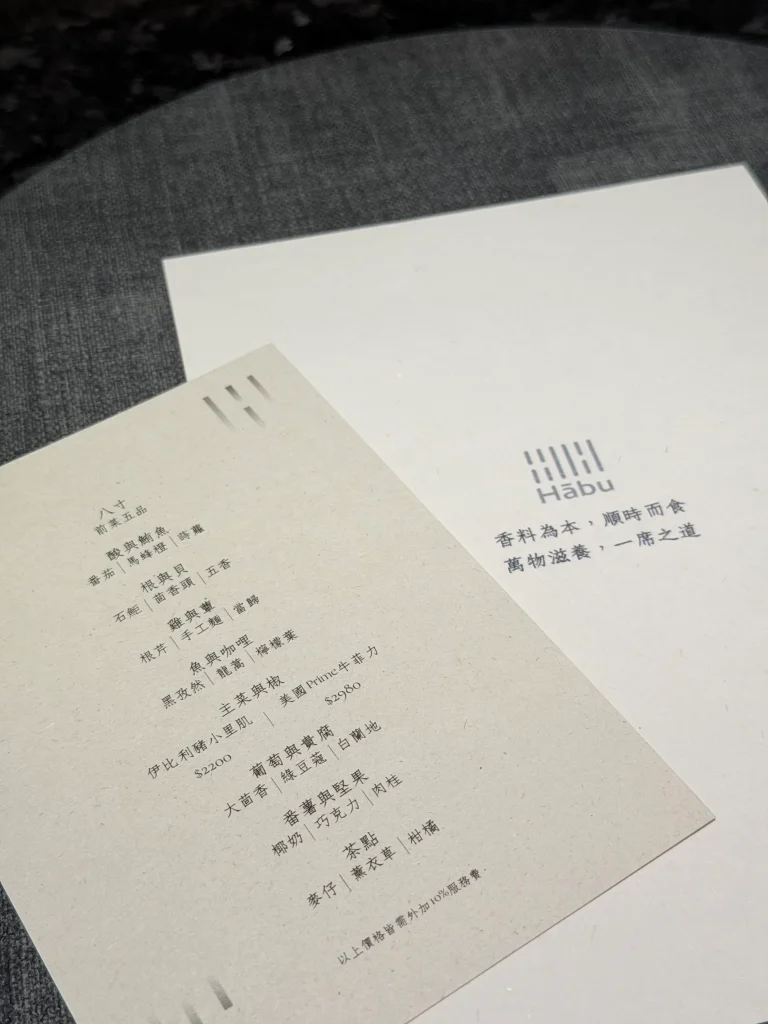 八寸
前菜五品
酸與鮪魚
番茄｜馬蜂橙｜蒔蘿
根與貝
石鮔｜茴香頭｜五香
雞與蕈
根芹｜手工麵｜當歸
魚與咖哩
黑孜然｜龍蒿｜檸檬葉
主菜與椒
伊比利豬小里肌｜美國Prime牛菲力
$2200 $2980
葡萄與貴腐
大茴香｜綠豆蔻｜白蘭地
番薯與堅果
椰奶｜巧克力｜肉桂
茶點
麥仔｜薰衣草｜柑橘
以上價格皆需外加10%服務費
Hābu
香料為本，順時而食
萬物滋養，一席之道